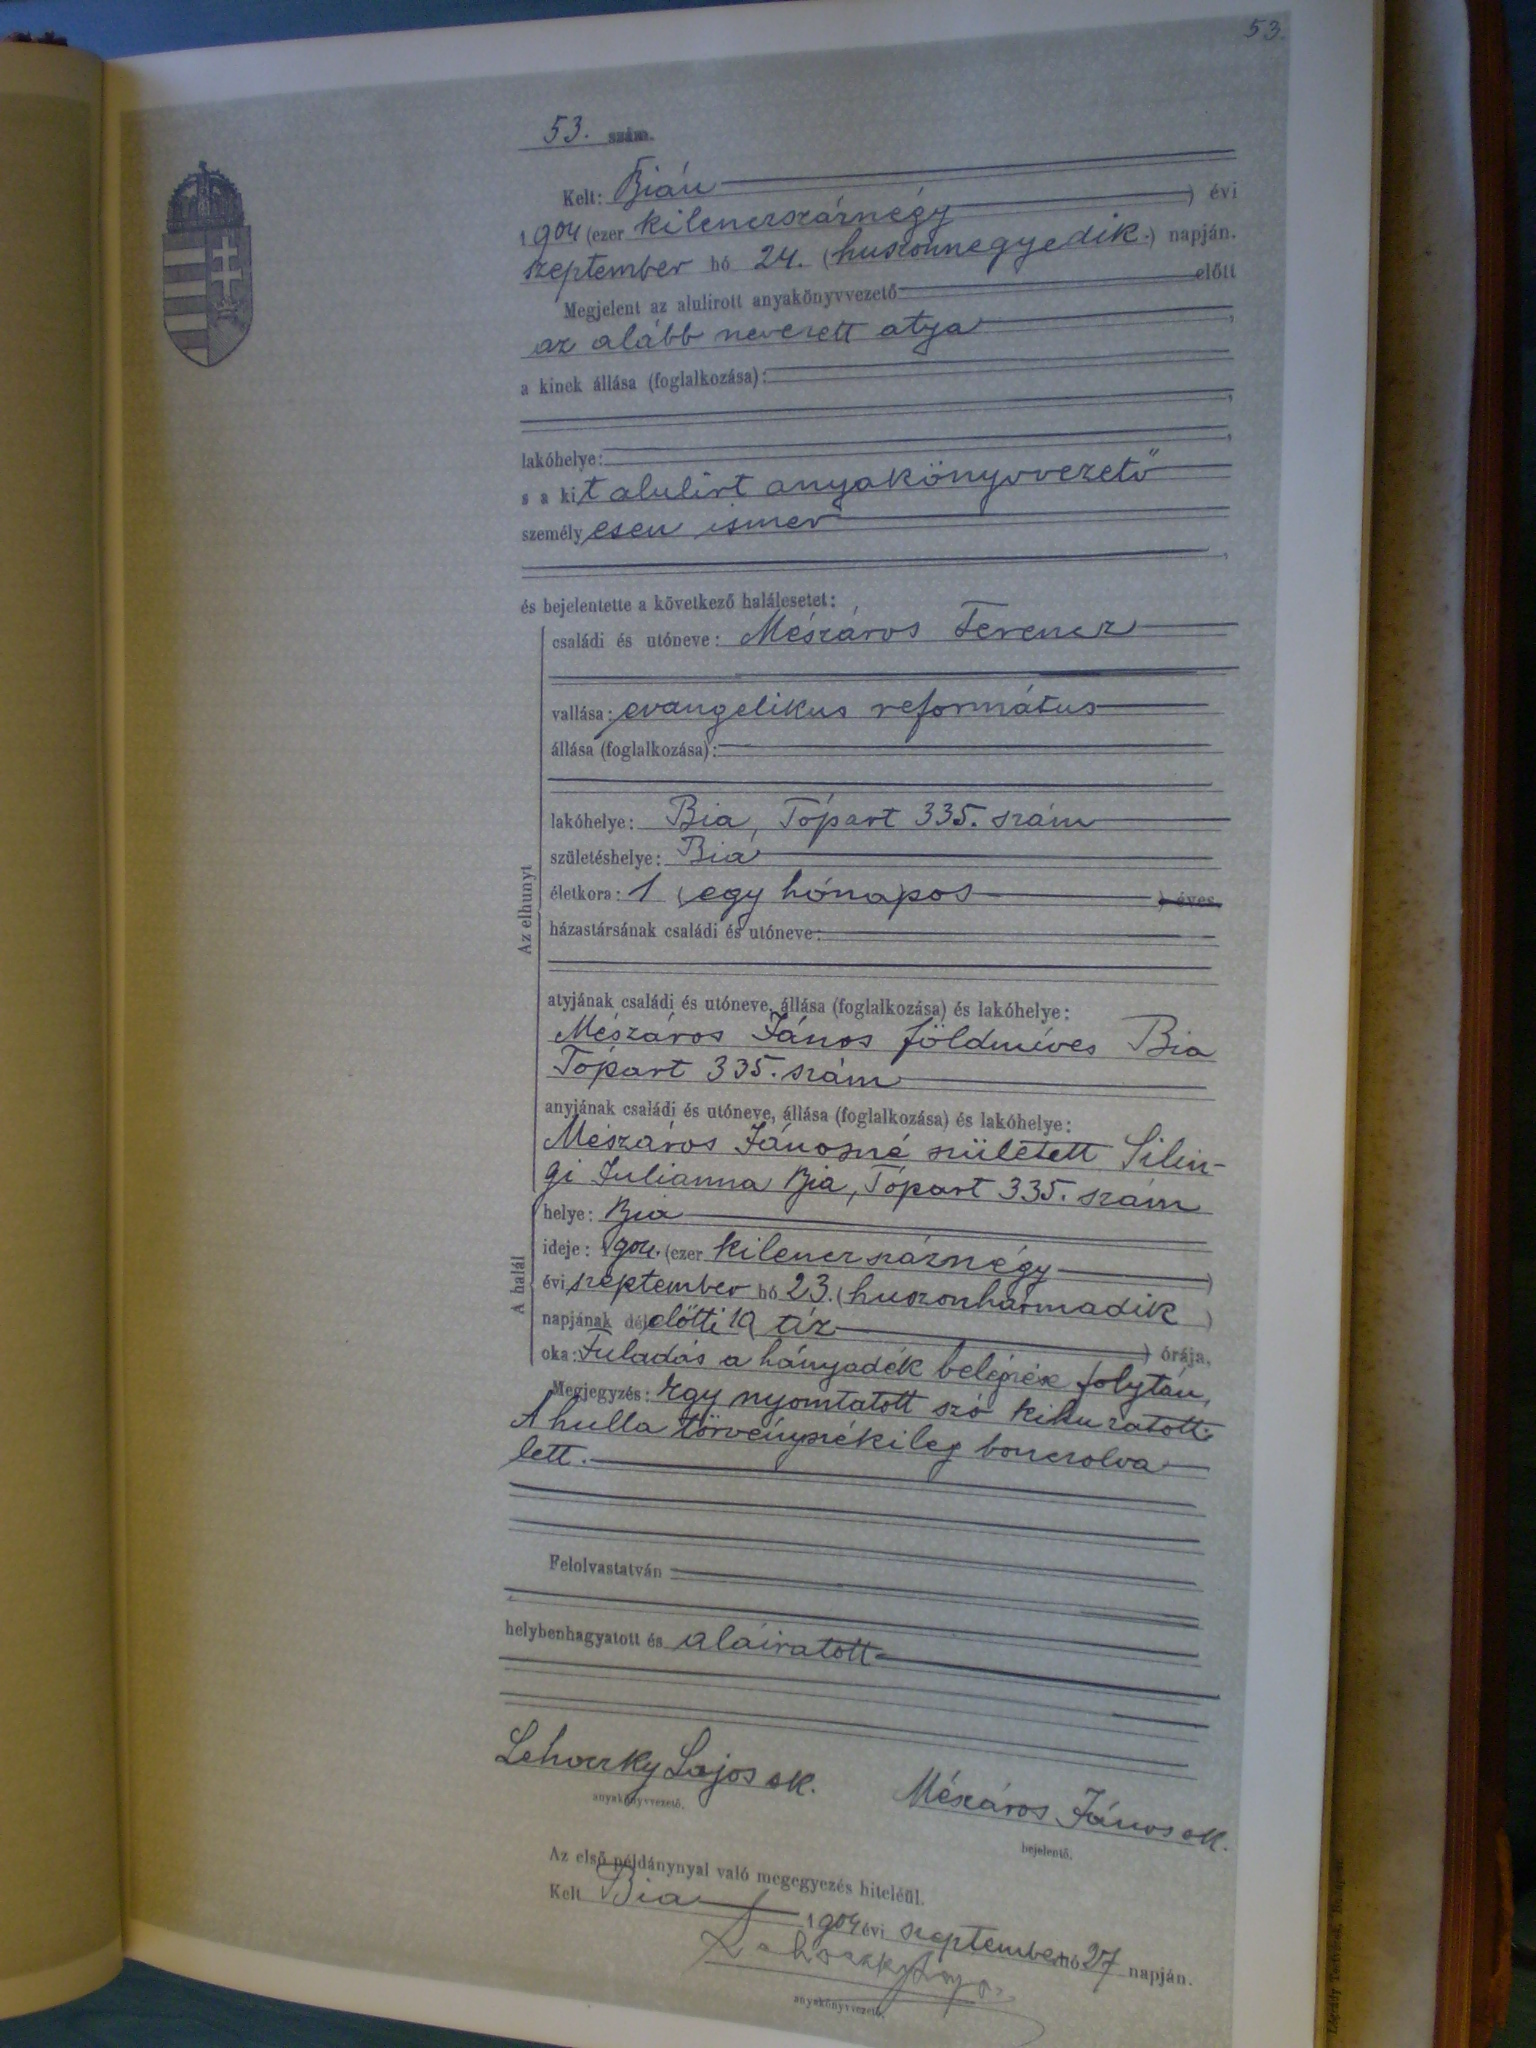 53.
53. szám.
Kelt: Bián
1904 (ezer kilenczszáznégy ) évi
szeptember hó 24. (huszonnegyedik.) napján.
Megjelent az alulirott anyakönyvvezető előtt
az alább nevezett atya ,
a kinek állása (foglalkozása):
,
lakóhelye: ,
s a kit alulirt anyakönyvvezető
személyesen ismer
,
és bejelentette a következő halálesetet:
Az elhunyt
családi és utóneve: Mészáros Ferencz
vallása: evangelikus református
állása (foglalkozása):
lakóhelye: Bia, Tópart 335. szám
születéshelye: Bia
életkora: 1 (egy hónapos ) éves.
házastársának családi és utóneve:
atyjának családi és utóneve, állása (foglalkozása) és lakóhelye:
Mészáros János földmíves Bia
Tópart 335. szám
anyjának családi és utóneve, állása (foglalkozása) és lakóhelye:
Mészáros Jánosné született Silin-
gi Julianna Bia, Tópart 335. szám
A halál
helye: Bia
ideje: 1904. (ezer kilenczszáznégy )
évi szeptember hó 23. (huszonharmadik )
napjának délelőtti 10 tíz ) órája,
oka: Fuladás a hányadék belégzése folytán,
Megjegyzés: Egy nyomtatott szó kihuzatott.
A hulla törvényszékileg bonczolva
lett.
Felolvastatván
helybenhagyatott és aláiratott
Lehoczky Lajos sk.
anyakönyvvezető.
Mészáros János sk.
bejelentő.
Az első példánynyal való megegyezés hiteléül.
Kelt Bia 1904 évi szeptember hó 27 napján.
Lehoczky Lajos
anyakönyvvezető.